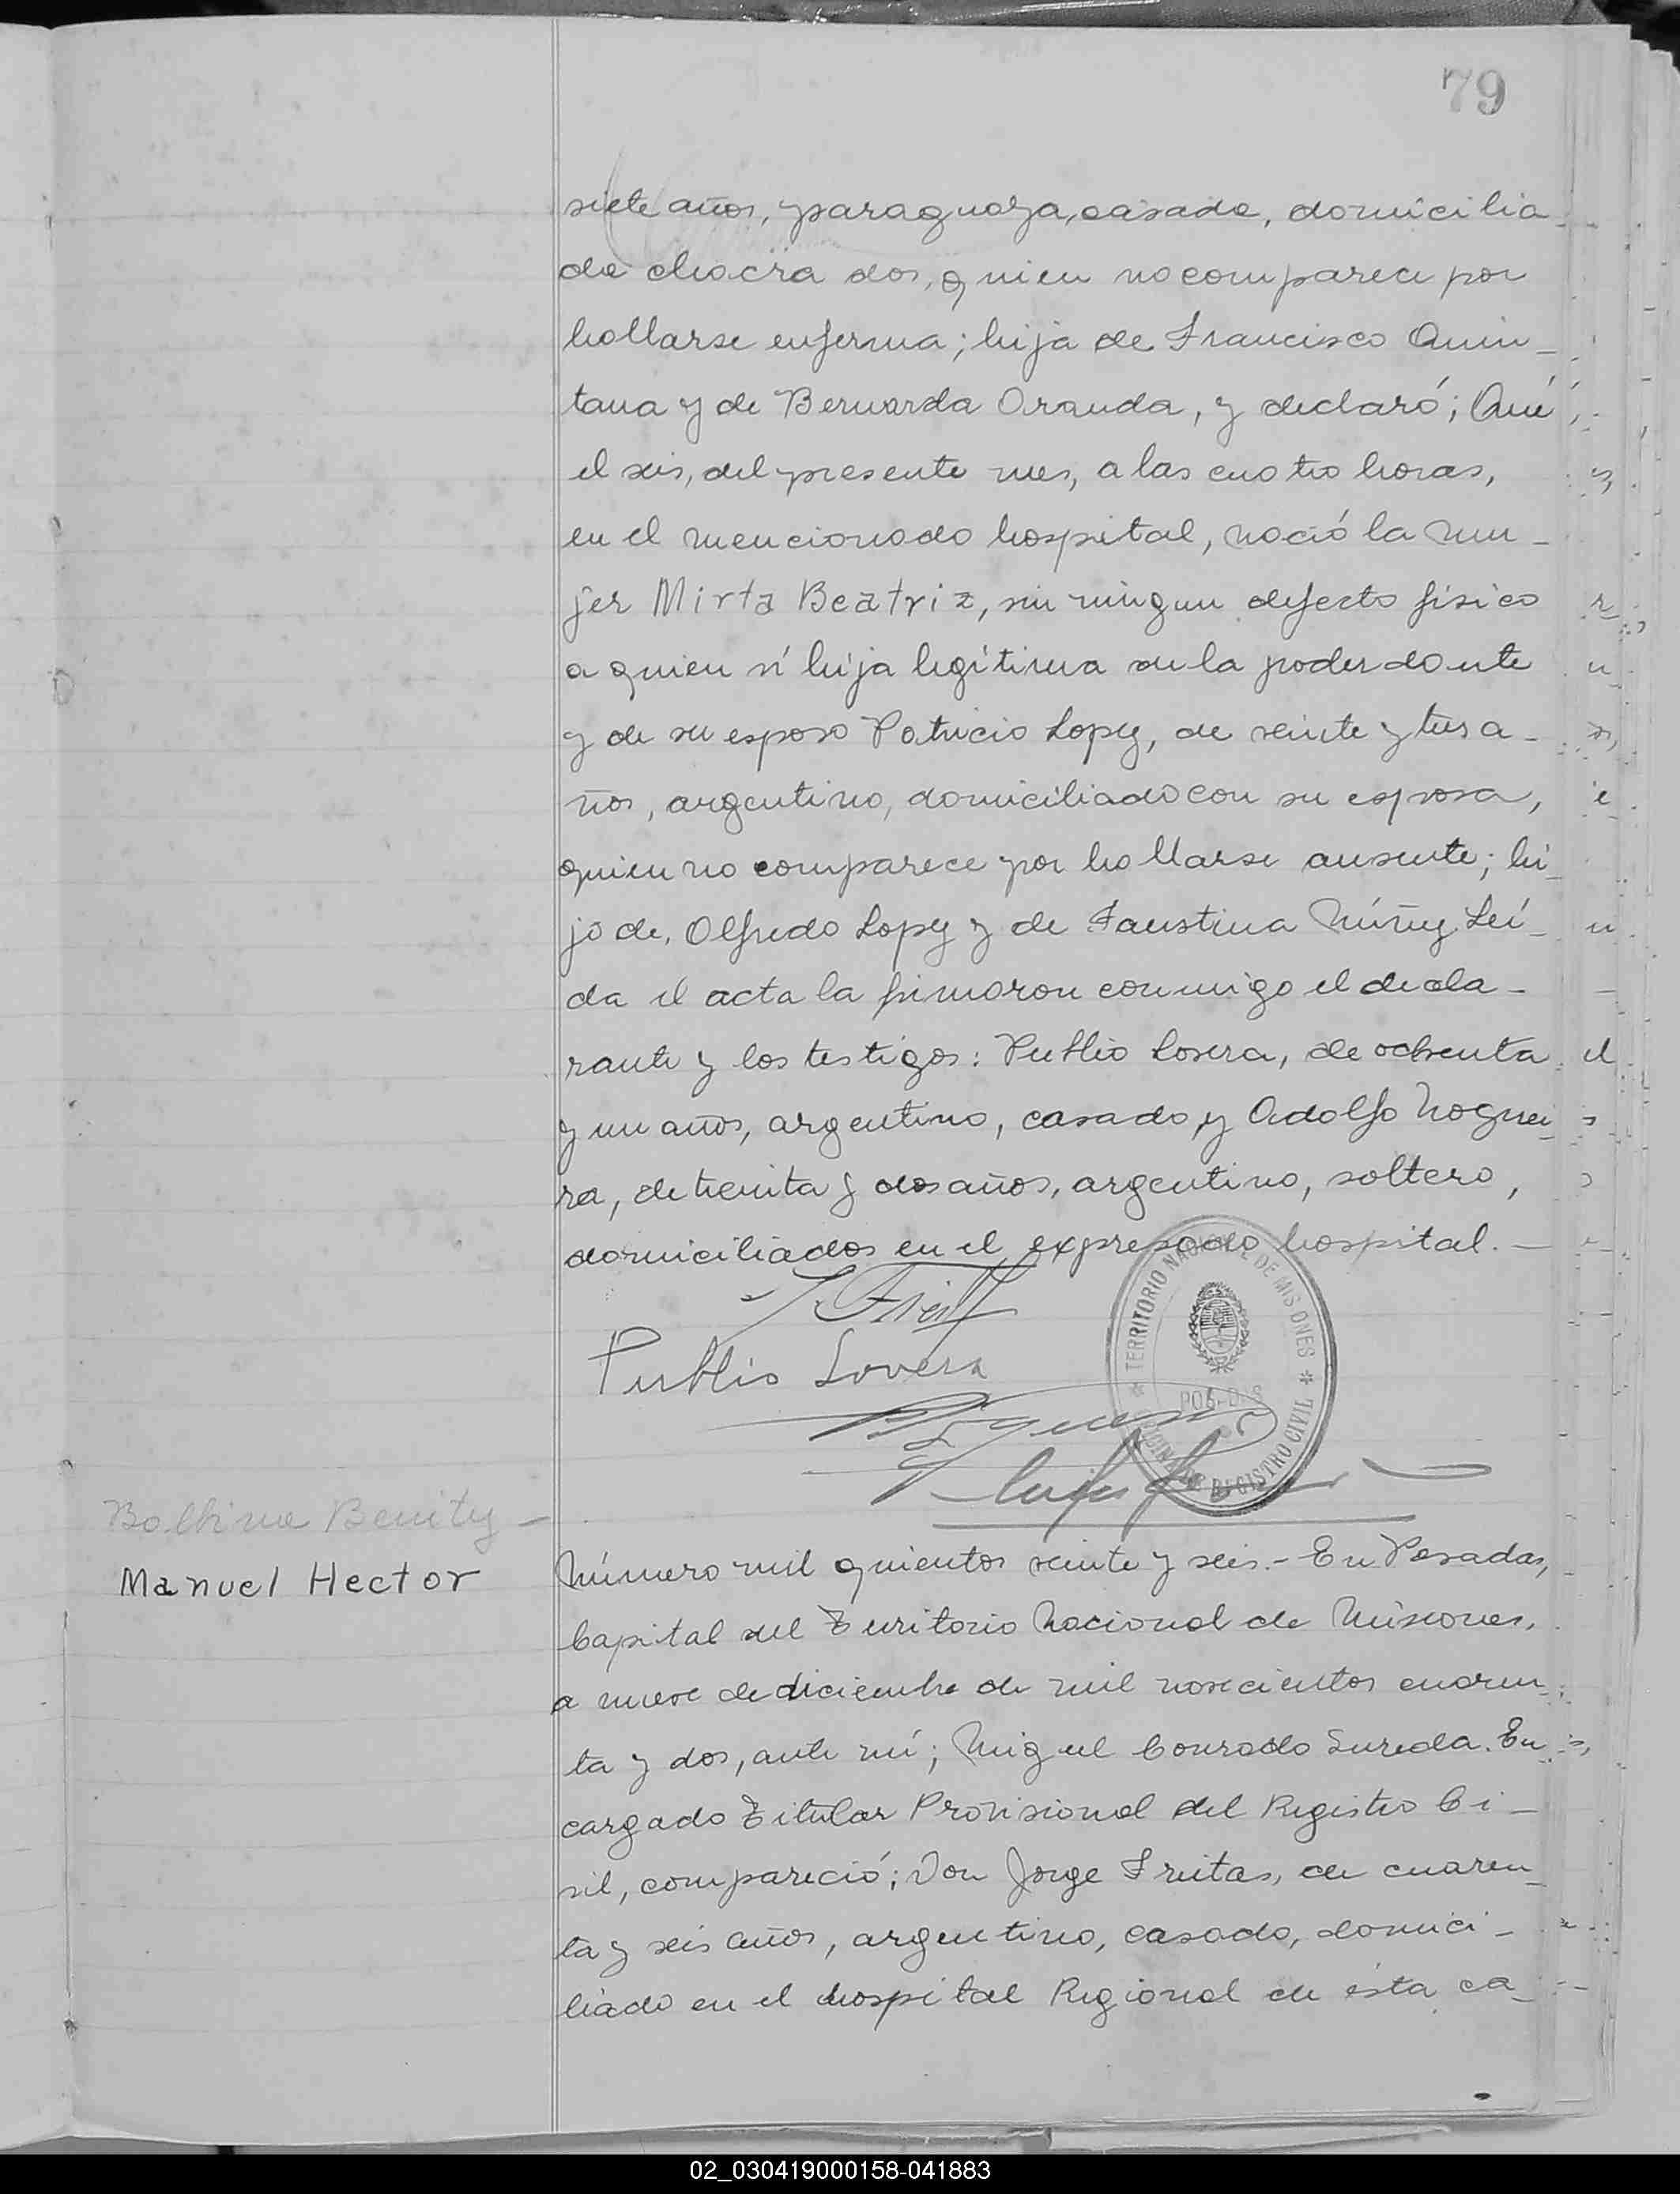 79
siete años, paraguaya, casada, domicilia-
da chacra dos, quien no comparece por
hallarse enferma; hija de Francisco Quin-
tana y de Bernarda Aranda, y declaró; Que
el seis, del presente mes, a las cuatro horas,
en el mencionado hospital, nació la mu-
jer Mirta Beatriz, sin ningun defecto físico
a quien ví hija legítima de la poderdante
y de su esposo Patricio Lopez, de veinte y tres a-
ños, argentino, domiciliado con su esposa,
quien no comparece por hallarse ausente; hi-
jo de, Alfredo Lopez y de Faustina Núñez. Leí-
da el acta la firmaron conmigo el decla-
rante y los testigos: Publio Lovera, de ochenta
y un años, argentino, casado, y Adolfo Noguei-
ra, de treinta y dos años, argentino, soltero,
domiciliados en el expresado hospital.—
Publio Lovera
TERRITORIO NACIONAL DE MISIONES
POSADAS
REGISTRO CIVIL
Balbina Benitez -
Manuel Hector
Número mil quientos veinte y seis.- En Posadas,
Capital del Territorio Nacional de Misiones,
a nueve de diciembre de mil novecientos cuaren-
ta y dos, ante mí; Miguel Conrado Sureda. En-
cargado Titular Provisional del Registro Ci-
vil, compareció; Don Jorge Freitas, de cuaren-
ta y seis años, argentino, casado, domici-
liado en el hospital Regional de ésta ca-
02_030419000158-041883